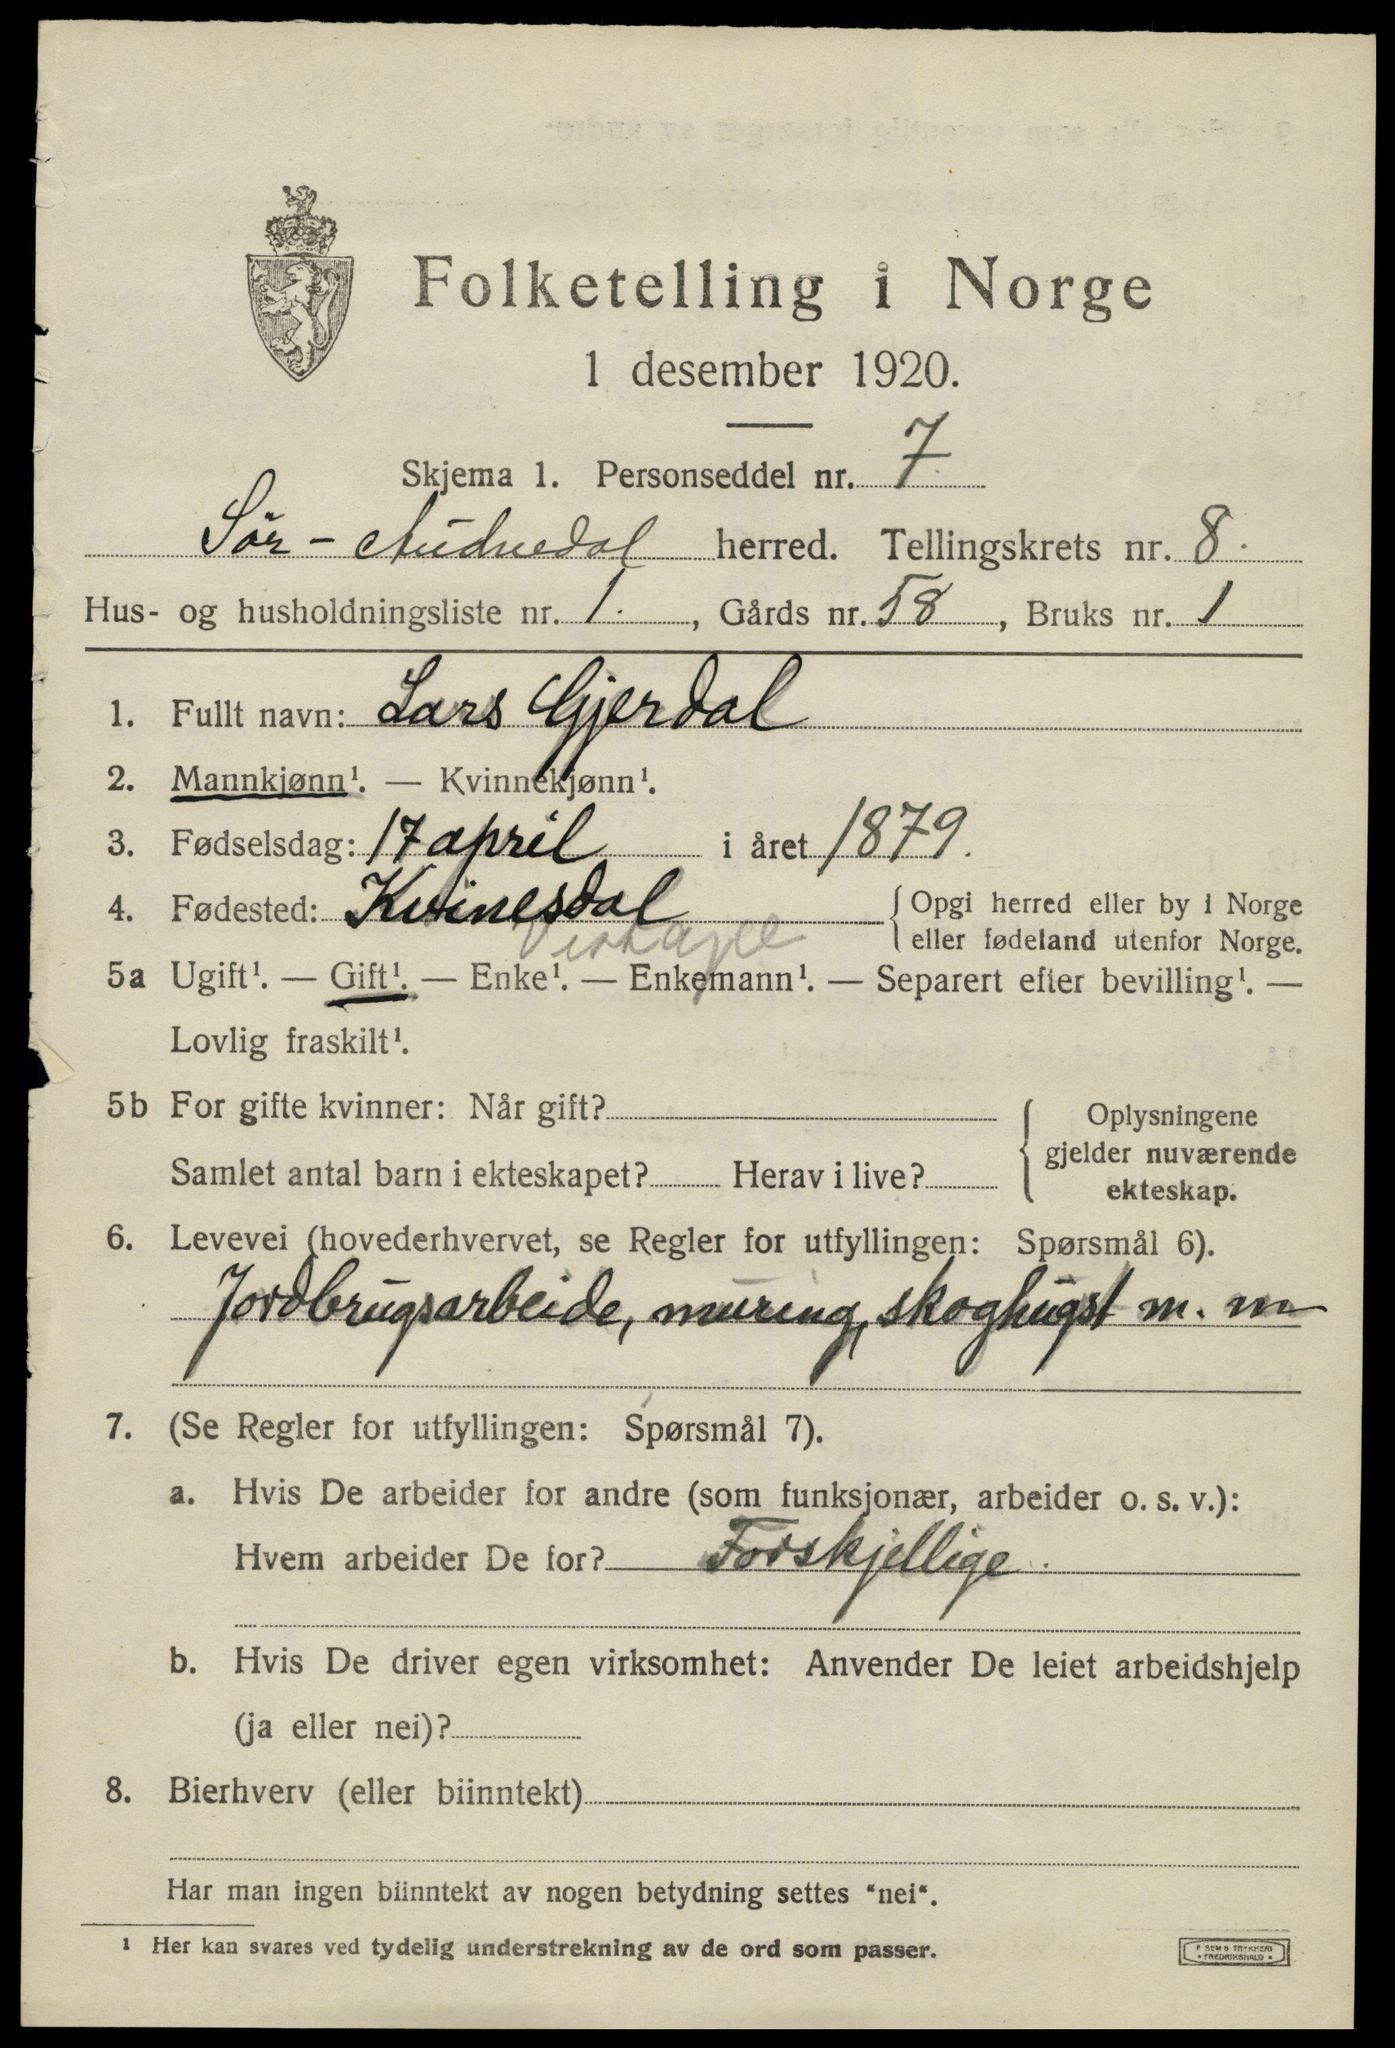 Folketelling i Norge
1 desember 1920.
Skjema 1. Personseddel nr. 7
Sör-Audnedal herred. Tellingskrets nr. 8.
Hus- og husholdningsliste nr. 1. , Gårds nr. 58 , Bruks nr. 1
1. Fullt navn: Lars Gjerdal
2. Mannkjønn¹. — Kvinnekjønn¹.
3. Fødselsdag: 17 april i året 1879.
4. Fødested: Kvinesdal { Opgi herred eller by i Norge
eller fødeland utenfor Norge.
5a Ugift¹. — Gift¹. — Enke¹. — Enkemann¹. — Separert efter bevilling¹. —
Lovlig fraskilt¹.
5b For gifte kvinner: Når gift? { Oplysningene
gjelder nuværende
Samlet antal barn i ekteskapet? Herav i live? ekteskap.
6. Levevei (hovederhvervet, se Regler for utfyllingen: Spørsmål 6).
Jordbrugsarbeide, muring, skoghugst m. m
7. (Se Regler for utfyllingen: Spørsmål 7).
a. Hvis De arbeider for andre (som funksjonær, arbeider o. s. v.):
Hvem arbeider De for? Forskjellige.
b. Hvis De driver egen virksomhet: Anvender De leiet arbeidshjelp
(ja eller nei)?
8. Bierhverv (eller biinntekt)
Har man ingen biinntekt av nogen betydning settes "nei".
¹ Her kan svares ved tydelig understrekning av de ord som passer.
F SEM'S TRYKKERI
• FREDRIKSHALD •